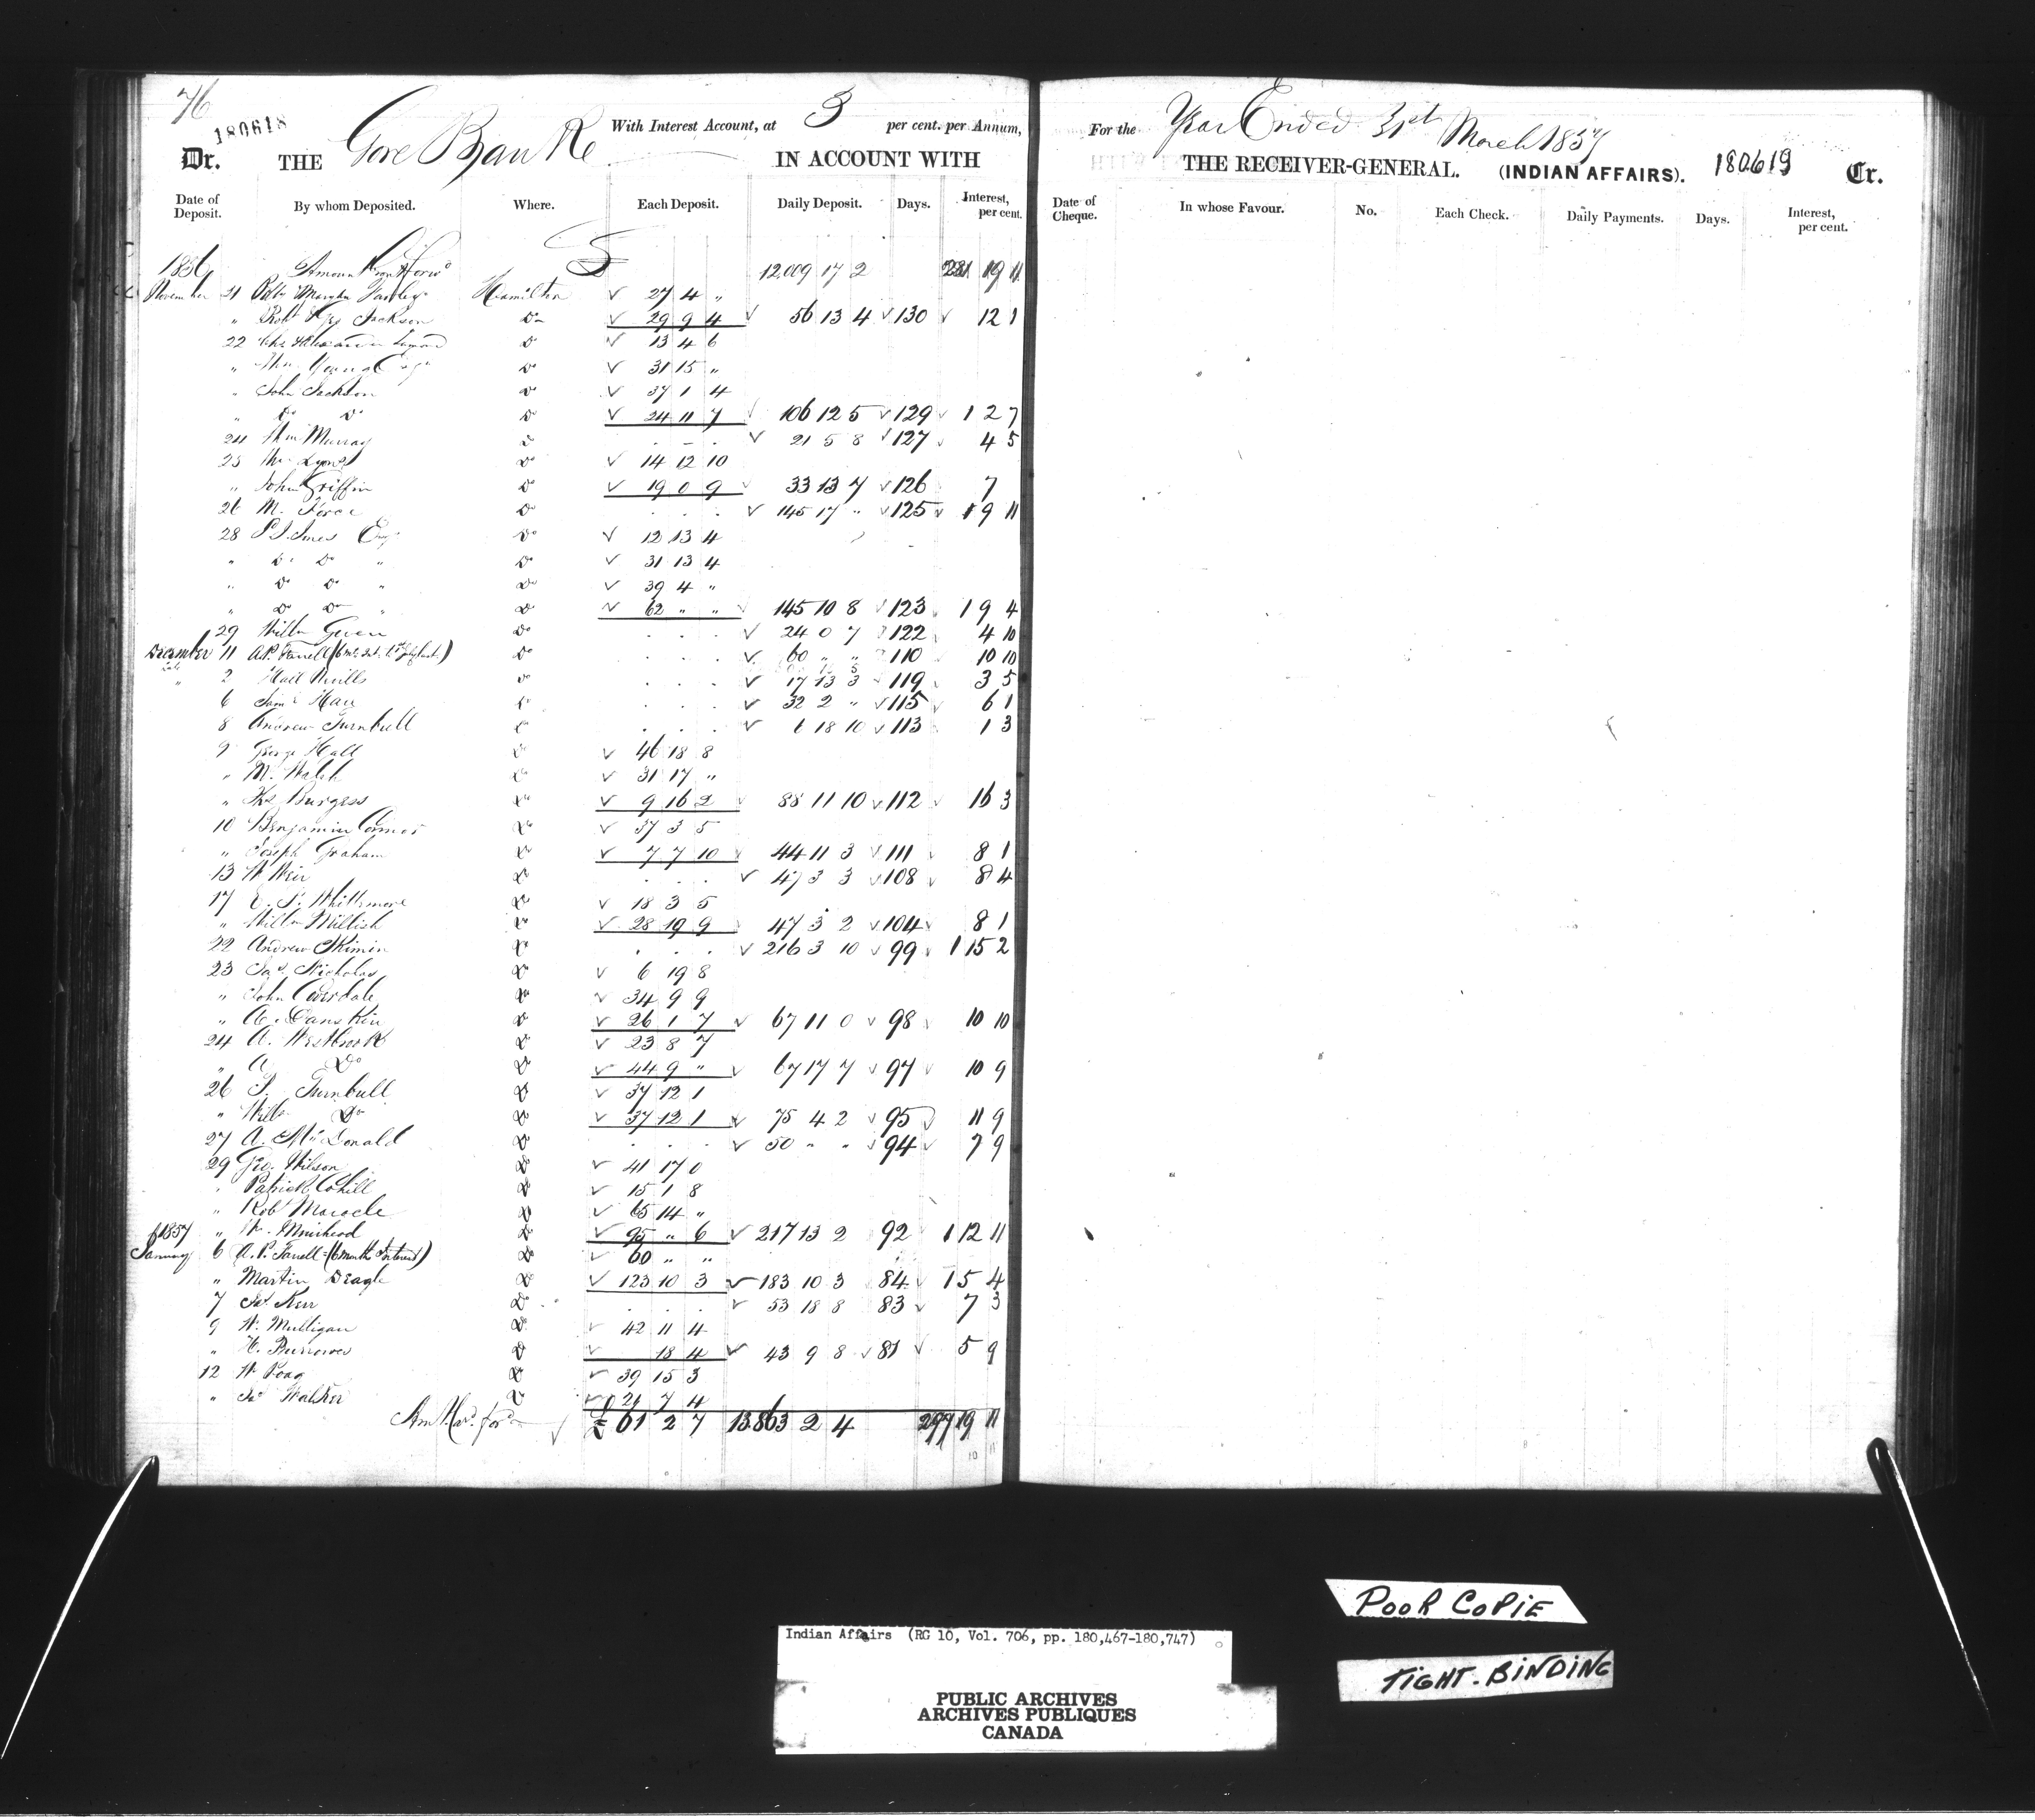 76
180618
Dr. THE Gore Bank With Interest Account, at 3 per cent. per Annum,
IN ACCOUNT WITH
Date of Deposit. By whom Deposited. Where. Each Deposit. Daily Deposit. Days. Interest, per cent.
1856 Amount Brot Forwd 12,009 17 2 231 19 11
November 21 Hamilton 27 4 "
" Robt Jackson Do 29 9 4 56 13 4 130 12 1
22 Do 13 4 6
" Young Esqr Do 31 15 "
" John Jackson Do 37 1 4
" Do Do Do 24 11 7 106 12 5 129 1 2 7
24 Murray Do 21 5 8 127 4 5
25 Lyons Do 14 12 10
" John Griffin Do 19 0 9 33 13 7 126 7
26 M. Force Do 145 17 " 125 1 9 11
28 Esqr Do 12 13 4
" Do Do " Do 31 13 4
" Do Do " Do 39 4 "
" Do Do " Do 62 " " 145 10 8 123 1 9 4
29 Willm Do 24 0 7 122 4 10
December 11 A.P. Farrell Do 60 " " 110 10 10
" 2 Hall Do 17 13 3 119 3 5
6 Saml Do 32 2 " 115 6 1
8 Andrew Turnbull Do 6 18 10 113 1 3
9 George Hall Do 46 18 8
" M. Walsh Do 31 17 "
" Burgess Do 9 16 2 88 11 10 112 16 3
10 Benjamin Do 37 3 5
" Joseph Graham Do 7 7 10 44 11 3 111 8 1
13 W Weir Do 47 3 3 108 8 4
17 Whittemore Do 18 3 5
" Willm Do 28 19 9 47 3 2 104 8 1
22 Andrew Do 216 3 10 99 1 15 2
23 Jas. Nicholas Do 6 19 8
" John Coverdale Do 34 9 9
" A. Danskin Do 26 1 7 67 11 0 98 10 10
24 A. Westbrook Do 23 8 7
" A Do Do 44 9 " 67 17 7 97 10 9
26 Turnbull Do 37 12 1
" Willm Do Do 37 12 1 75 4 2 95 11 9
27 A. McDonald Do 50 " " 94 7 9
29 Geo. Wilson Do 41 17 0
" Patrick Cahill Do 15 1 8
" Rob Maracle Do 65 14 "
" W. Muirhead Do 95 " 6 217 13 2 92 1 12 11
1857
January 6 A.P. Farrell (6 months Interest) Do 60 " "
" Martin Deagle Do 123 10 3 183 10 3 84 1 5 4
7 Jas. Kerr Do 53 18 8 83 7 3
9 W. Mulligan Do 42 11 4
" H. Burrowes Do 18 4 43 9 8 81 5 9
12 W Poag Do 39 15 3
" Walker Do 21 7 4
Amt Card. ford £ 61 2 7 13863 2 4 297 19 11
10 11
For the Year Ended 31st March 1857
THE RECEIVER-GENERAL. (INDIAN AFFAIRS). 180619 Cr.
Date of Cheque. In whose Favour. No. Each Check. Daily Payments. Days. Interest, per cent.
POOR COPIE
Indian Affairs (RG 10, Vol. 706, pp. 180,467-180,747)
TIGHT. BINDING
PUBLIC ARCHIVES
ARCHIVES PUBLIQUES
CANADA